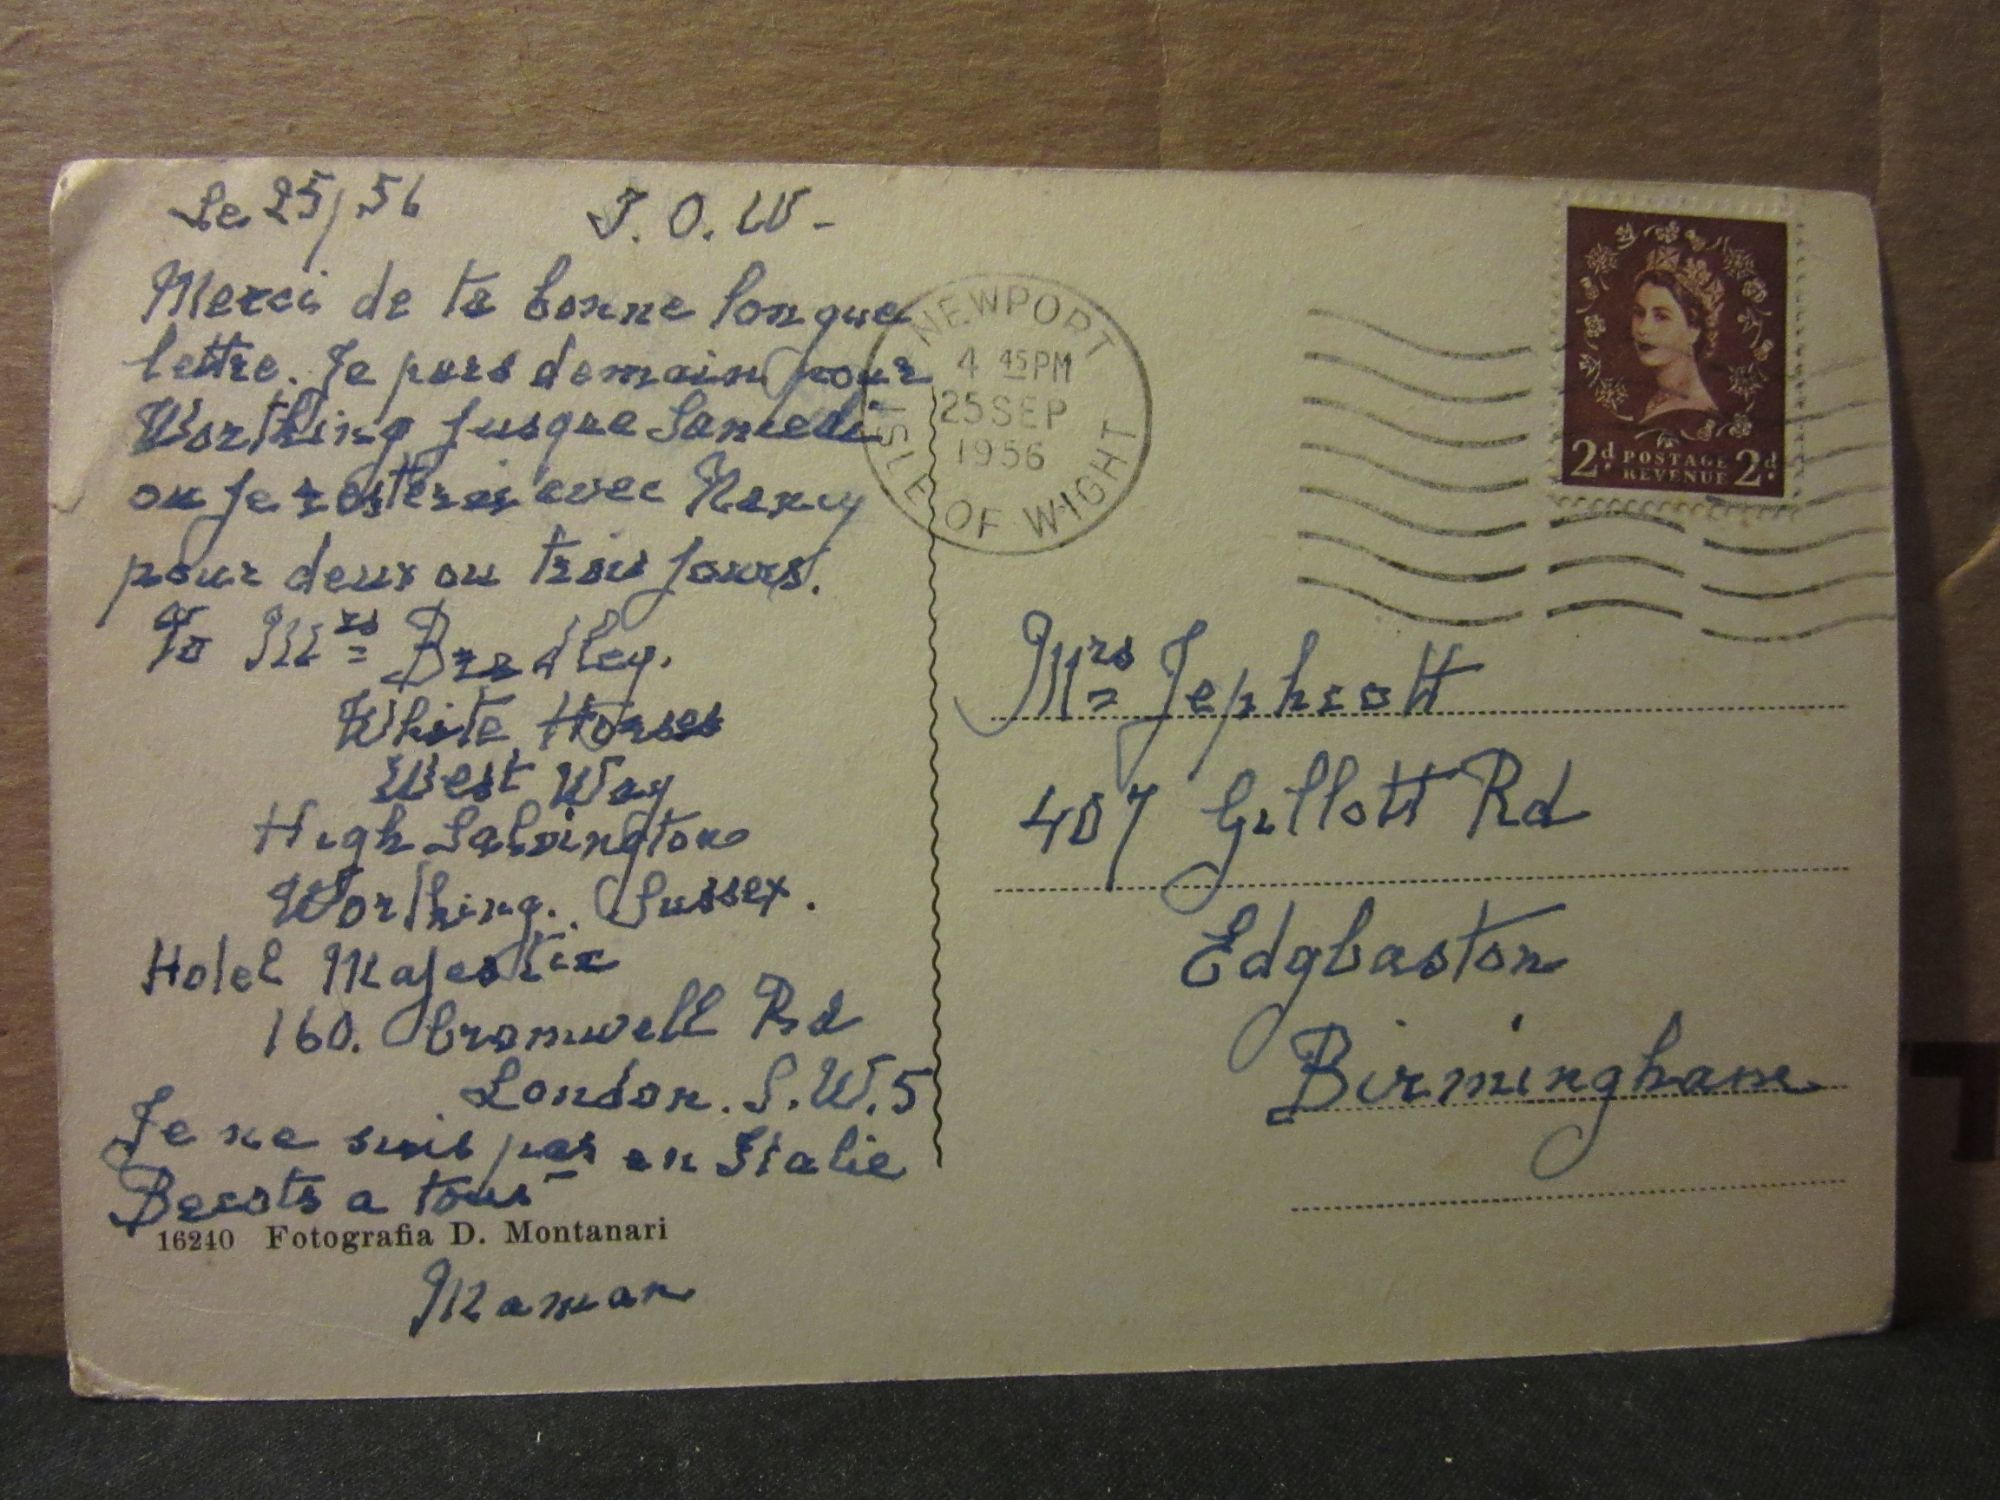 Le 25/56 I.O.W-
Merci de ta bonne longue
lettre. Je pars demain pour
Worthing jusque Samedi
ou je resterai avec Nancy
pour deux ou trois jours.
To Mrs Bradley.
White Horses
West Way
High Salvington
Worthing. Sussex.
Hotel Majestic
160. Cromwell Rd
London. S.W.5
Je ne suis pas en Italie
Besots a tous
16240 Fotografia D. Montanari
Maman
NEWPORT
4 45PM
25 SEP
1956
ISLE OF WIGHT
2d POSTAGE REVENUE 2d
Mrs Jephcott
407 Gillott Rd
Edgbaston
Birmingham